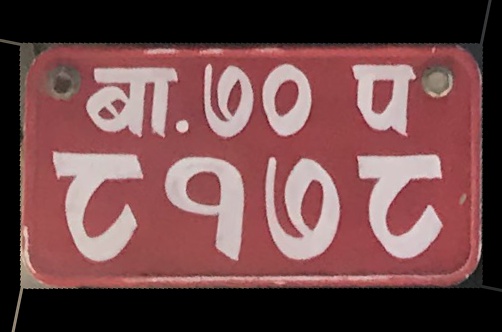 बा.७० प
८१७८